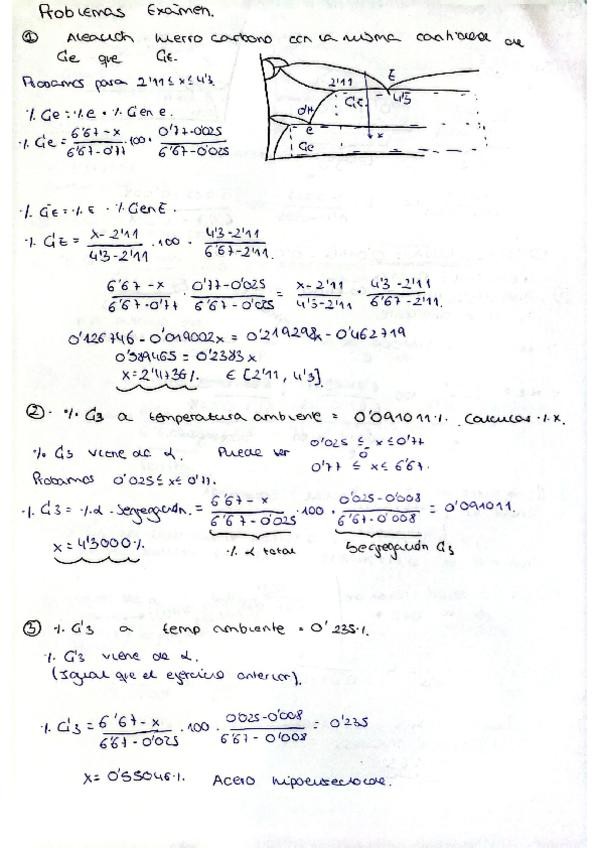 Problemas Examen.
① Aleación hierro carbono con la misma cantidad de
Ce que CE.
Probamos para 2'11 ≤ x ≤ 4'3
2'11 E
0'77 CE 4'3
e x
Ce
% Ce = % e · % C en e.
% Ce = (6'67-x)/(6'67-0'77) · 100 · (0'77-0'025)/(6'67-0'025)
% CE = % E · % C en E.
% CE = (x-2'11)/(4'3-2'11) · 100 · (4'3-2'11)/(6'67-2'11)
(6'67-x)/(6'67-0'77) · (0'77-0'025)/(6'67-0'025) = (x-2'11)/(4'3-2'11) · (4'3-2'11)/(6'67-2'11).
0'126746 - 0'019002x = 0'219298x - 0'462719
0'589465 = 0'2383x
x = 2'4736% ∈ [2'11, 4'3]
② · % C3 a temperatura ambiente = 0'091011%. Calcular % x.
% C3 viene de α. Puede ser 0'025 ≤ x ≤ 0'77
o
0'77 ≤ x ≤ 6'67.
Probamos 0'025 ≤ x ≤ 0'77.
% C3 = % α · Segregación = (6'67-x)/(6'67-0'025) · 100 · (0'025-0'008)/(6'67-0'008) = 0'091011.
x = 4'3000% % α total Segregación C3
③ % C3 a temp ambiente = 0'235%.
% C3 viene de α.
(Igual que el ejercicio anterior).
% C3 = (6'67-x)/(6'67-0'025) · 100 · (0'025-0'008)/(6'67-0'008) = 0'235
x = 0'55046% Acero hipoeutectoide.